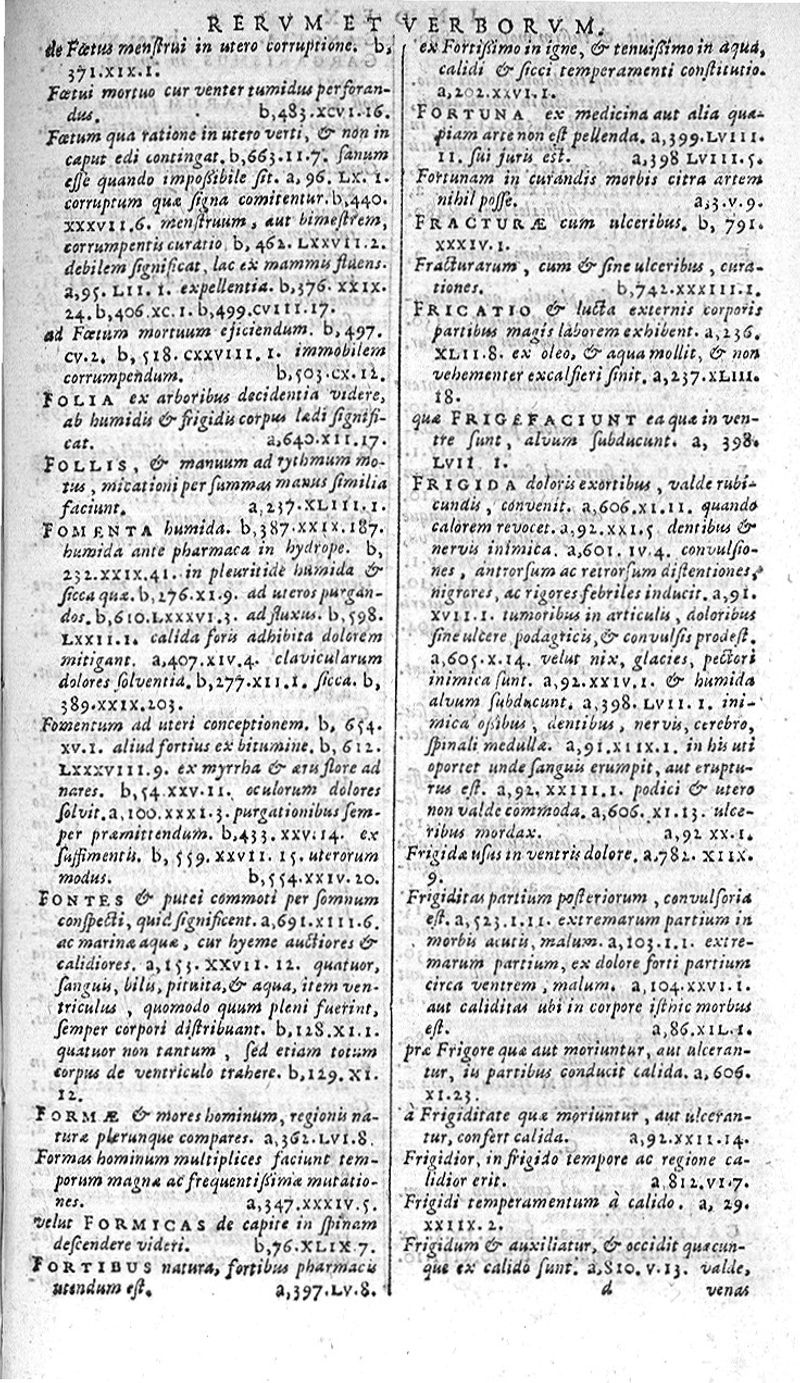 RERVM ET VERBORVM.
de Fœtus menstrui in utero corruptione. b,
371.XIX.1.
Fœtui mortuo cur venter tumidus perforan-
dus. b,483.XCVI.16.
Fœtum qua ratione in utero verti, & non in
caput edi contingat. b,663.II.7. sanum
esse quando impoßibile sit. a,96.LX.1.
corruptum quæ signa comitentur. b,440.
XXXVII.6. menstruum, aut bimestrem,
corrumpentis curatio. b,462.LXXVII.2.
debilem significat, lac ex mammis fluens.
a,95.LII.1. expellentia. b,376.XXIX.
24. b,406.XC.1. b,499.CVIII.17.
ad Fœtum mortuum ejiciendum. b,497.
CV.2. b,518.CXXVIII.1. immobilem
corrumpendum. b,503.CX.12.
FOLIA ex arboribus decidentia videre,
ab humidis & frigidis corpus lædi signifi-
cat. a,640.XII.17.
FOLLIS, & manuum ad rythmum mo-
tus, micationi per summas manus similia
faciunt. a,237.XLIII.1.
FOMENTA humida. b,387.XXIX.187.
humida ante pharmaca in hydrope. b,
232.XXIX.41. in pleuritide humida &
sicca quæ. b,276.XI.9. ad uteros purgan-
dos. b,610.LXXXVI.3. ad fluxus. b,598.
LXXII.1. calida foris adhibita dolorem
mitigant. a,407.XIV.4. clavicularum
dolores solventia. b,277.XII.1. sicca. b,
389.XXIX.203.
Fomentum ad uteri conceptionem. b, 654.
XV.1. aliud fortius ex bitumine. b, 612.
LXXXVIII.9. ex myrrha & æris flore ad
nares. b,54.XXV.11. oculorum dolores
solvit. a,100.XXXI.3. purgationibus sem-
per præmittendum. b,433.XXV.14. ex
suffimentis. b, 559.XXVII.15. uterorum
modus. b,554.XXIV.20.
FONTES & putei commoti per somnum
conspecti, quid significent. a,691.XIII.6.
ac marinæ aquæ, cur hyeme auctiores &
calidiores. a,153.XXVII.12. quatuor,
sanguis, bilis, pituita, & aqua, item ven-
triculus, quomodo quum pleni fuerint,
semper corpori distribuant. b,128.XI.1.
quatuor non tantum, sed etiam totum
corpus de ventriculo trahere. b,129.XI.
12.
FORMÆ & mores hominum, regionis na-
turæ plerunque compares. a,362.LVI.8.
Formas hominum multiplices faciunt tem-
porum magnæ ac frequentißimæ mutatio-
nes. a,347.XXXIV.5.
velut FORMICAS de capite in spinam
descendere videri. b,76.XLIX.7.
FORTIBUS natura, fortibus pharmacis
utendum est. a,397.LV.8.
ex Fortißimo in igne, & tenuißimo in aqua,
calidi & sicci temperamenti constitutio.
a,202.XXVI.1.
FORTUNA ex medicina aut alia quæ-
piam arte non est pellenda. a,399.LVIII.
11. sui juris est. a,398 LVIII.5.
Fortunam in curandis morbis citra artem
nihil posse. a,3.V.9.
FRACTURÆ cum ulceribus. b, 791.
XXXIV.1.
Fracturarum, cum & sine ulceribus, cura-
tiones. b,742.XXXIII.1.
FRICATIO & lucta externis corporis
partibus magis laborem exhibent. a,236.
XLII.8. ex oleo, & aqua mollit, & non
vehementer excalfieri sinit. a,237.XLIII.
18.
quæ FRIGEFACIUNT ea quæ in ven-
tre sunt, alvum subducunt. a, 398.
LVII 1.
FRIGIDA doloris exortibus, valde rubi-
cundis, convenit. a,606.XI.11. quando
calorem revocet. a,92.XXI.5 dentibus &
nervis inimica. a,601.IV.4. convulsio-
nes, antrorsum ac retrorsum distentiones,
nigrores, ac rigores febriles inducit. a,91.
XVII.1. tumoribus in articulis, doloribus
sine ulcere podagricis, & convulsis prodest.
a,605.X.14. velut nix, glacies, pectori
inimica sunt. a,92.XXIV.1. & humida
alvum subducunt. a,398.LVII.1. ini-
mica oßibus, dentibus, nervis, cerebro,
spinali medullæ. a,91.XIIX.1. in his uti
oportet unde sanguis erumpit, aut eruptu-
rus est. a,92.XXIII.1. podici & utero
non valde commoda. a,606.XI.13. ulce-
ribus mordax. a,92 XX.1.
Frigidæ usus in ventris dolore. a,782.XIIX.
9.
Frigiditas partium posteriorum, convulsoria
est. a,523.I.11. extremarum partium in
morbis acutis, malum. a,103.I.1. extre-
marum partium, ex dolore forti partium
circa ventrem, malum. a,104.XXVI.1.
aut caliditas ubi in corpore isthic morbus
est. a,86.XIL.1.
præ Frigore quæ aut moriuntur, aut ulceran-
tur, iis partibus conducit calida. a,606.
XI.23.
à Frigiditate quæ moriuntur, aut ulceran-
tur, confert calida. a,92.XXII.14.
Frigidior, in frigido tempore ac regione ca-
lidior erit. a,812.VI.7.
Frigidi temperamentum à calido. a, 29.
XXIIX.2.
Frigidum & auxiliatur, & occidit quæcun-
que ex calido sunt. a,810.V.13. valde,
d venas